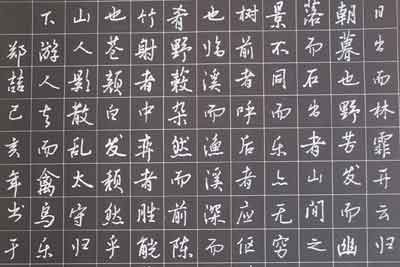 日出而林霏开云归
朝暮也野芳发而幽
落而石出者山间之
景不同而乐亦无穷
树前者呼后者应伛
也临溪而渔溪深而
肴野蔌杂然而前陈
竹射者中弈者胜觥
也苍颜白发颓然乎
山人影散乱太守归
下游人去而禽鸟乐
郑喆己亥年书于